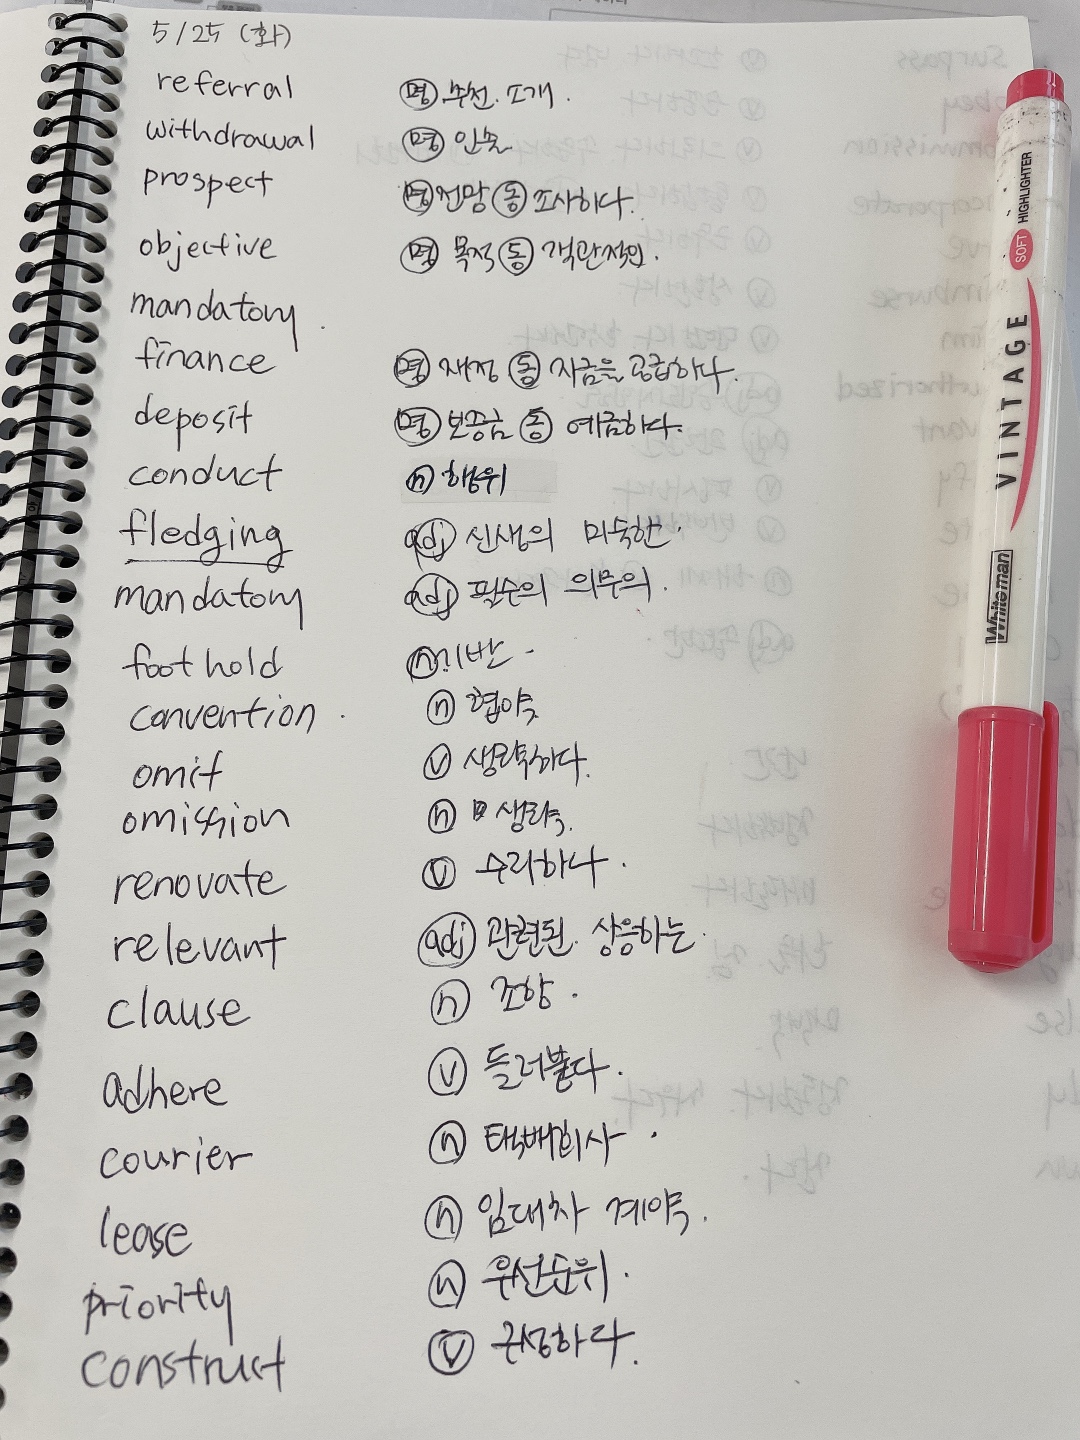 5/25 (화)
referral 명 추천. 소개.
withdrawal 명 인출
prospect 명 전망 동 조사하다.
objective 명 목적 동 객관적인.
mandatory.
finance 명 재정 동 자금을 공급하다.
deposit 명 보증금 동 예금하다.
conduct n 행위
fledging adj 신생의 미숙한.
mandatory adj 필수의 의무의.
foothold n 기반.
convention. n 협약
omit v 생략하다.
omission n 생략.
renovate v 수리하다.
relevant adj 관련된. 상응하는.
clause n 조항.
adhere v 들러붙다.
courier n 택배회사.
lease n 임대차 계약.
priority n 우선순위.
construct v
SOFT HIGHLIGHTER
VINTAGE
Whiteman